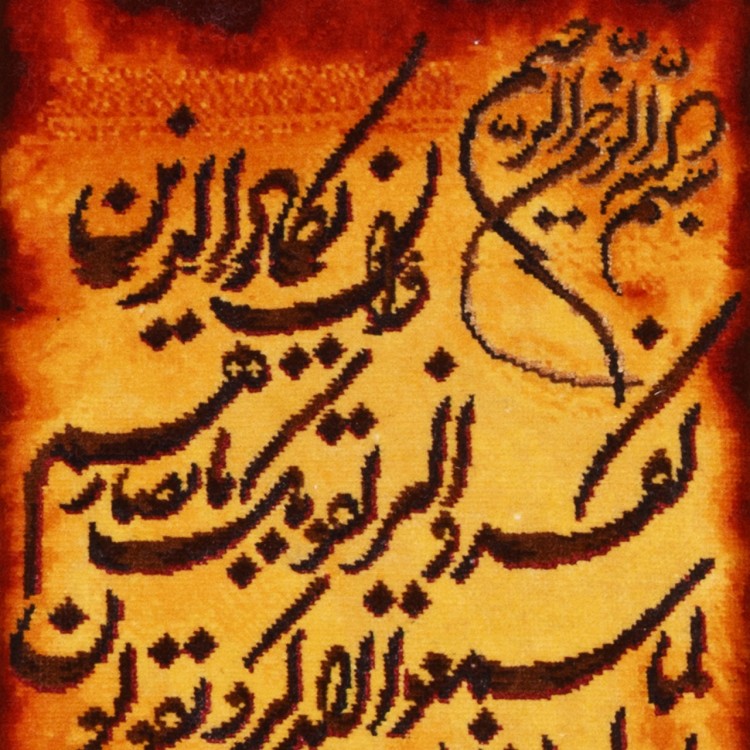 بسم الله الرحمن الرحیم
وان یکاد الذین
کفروا لیزلقونک بابصارهم
لما سمعوا الذکر و یقولون